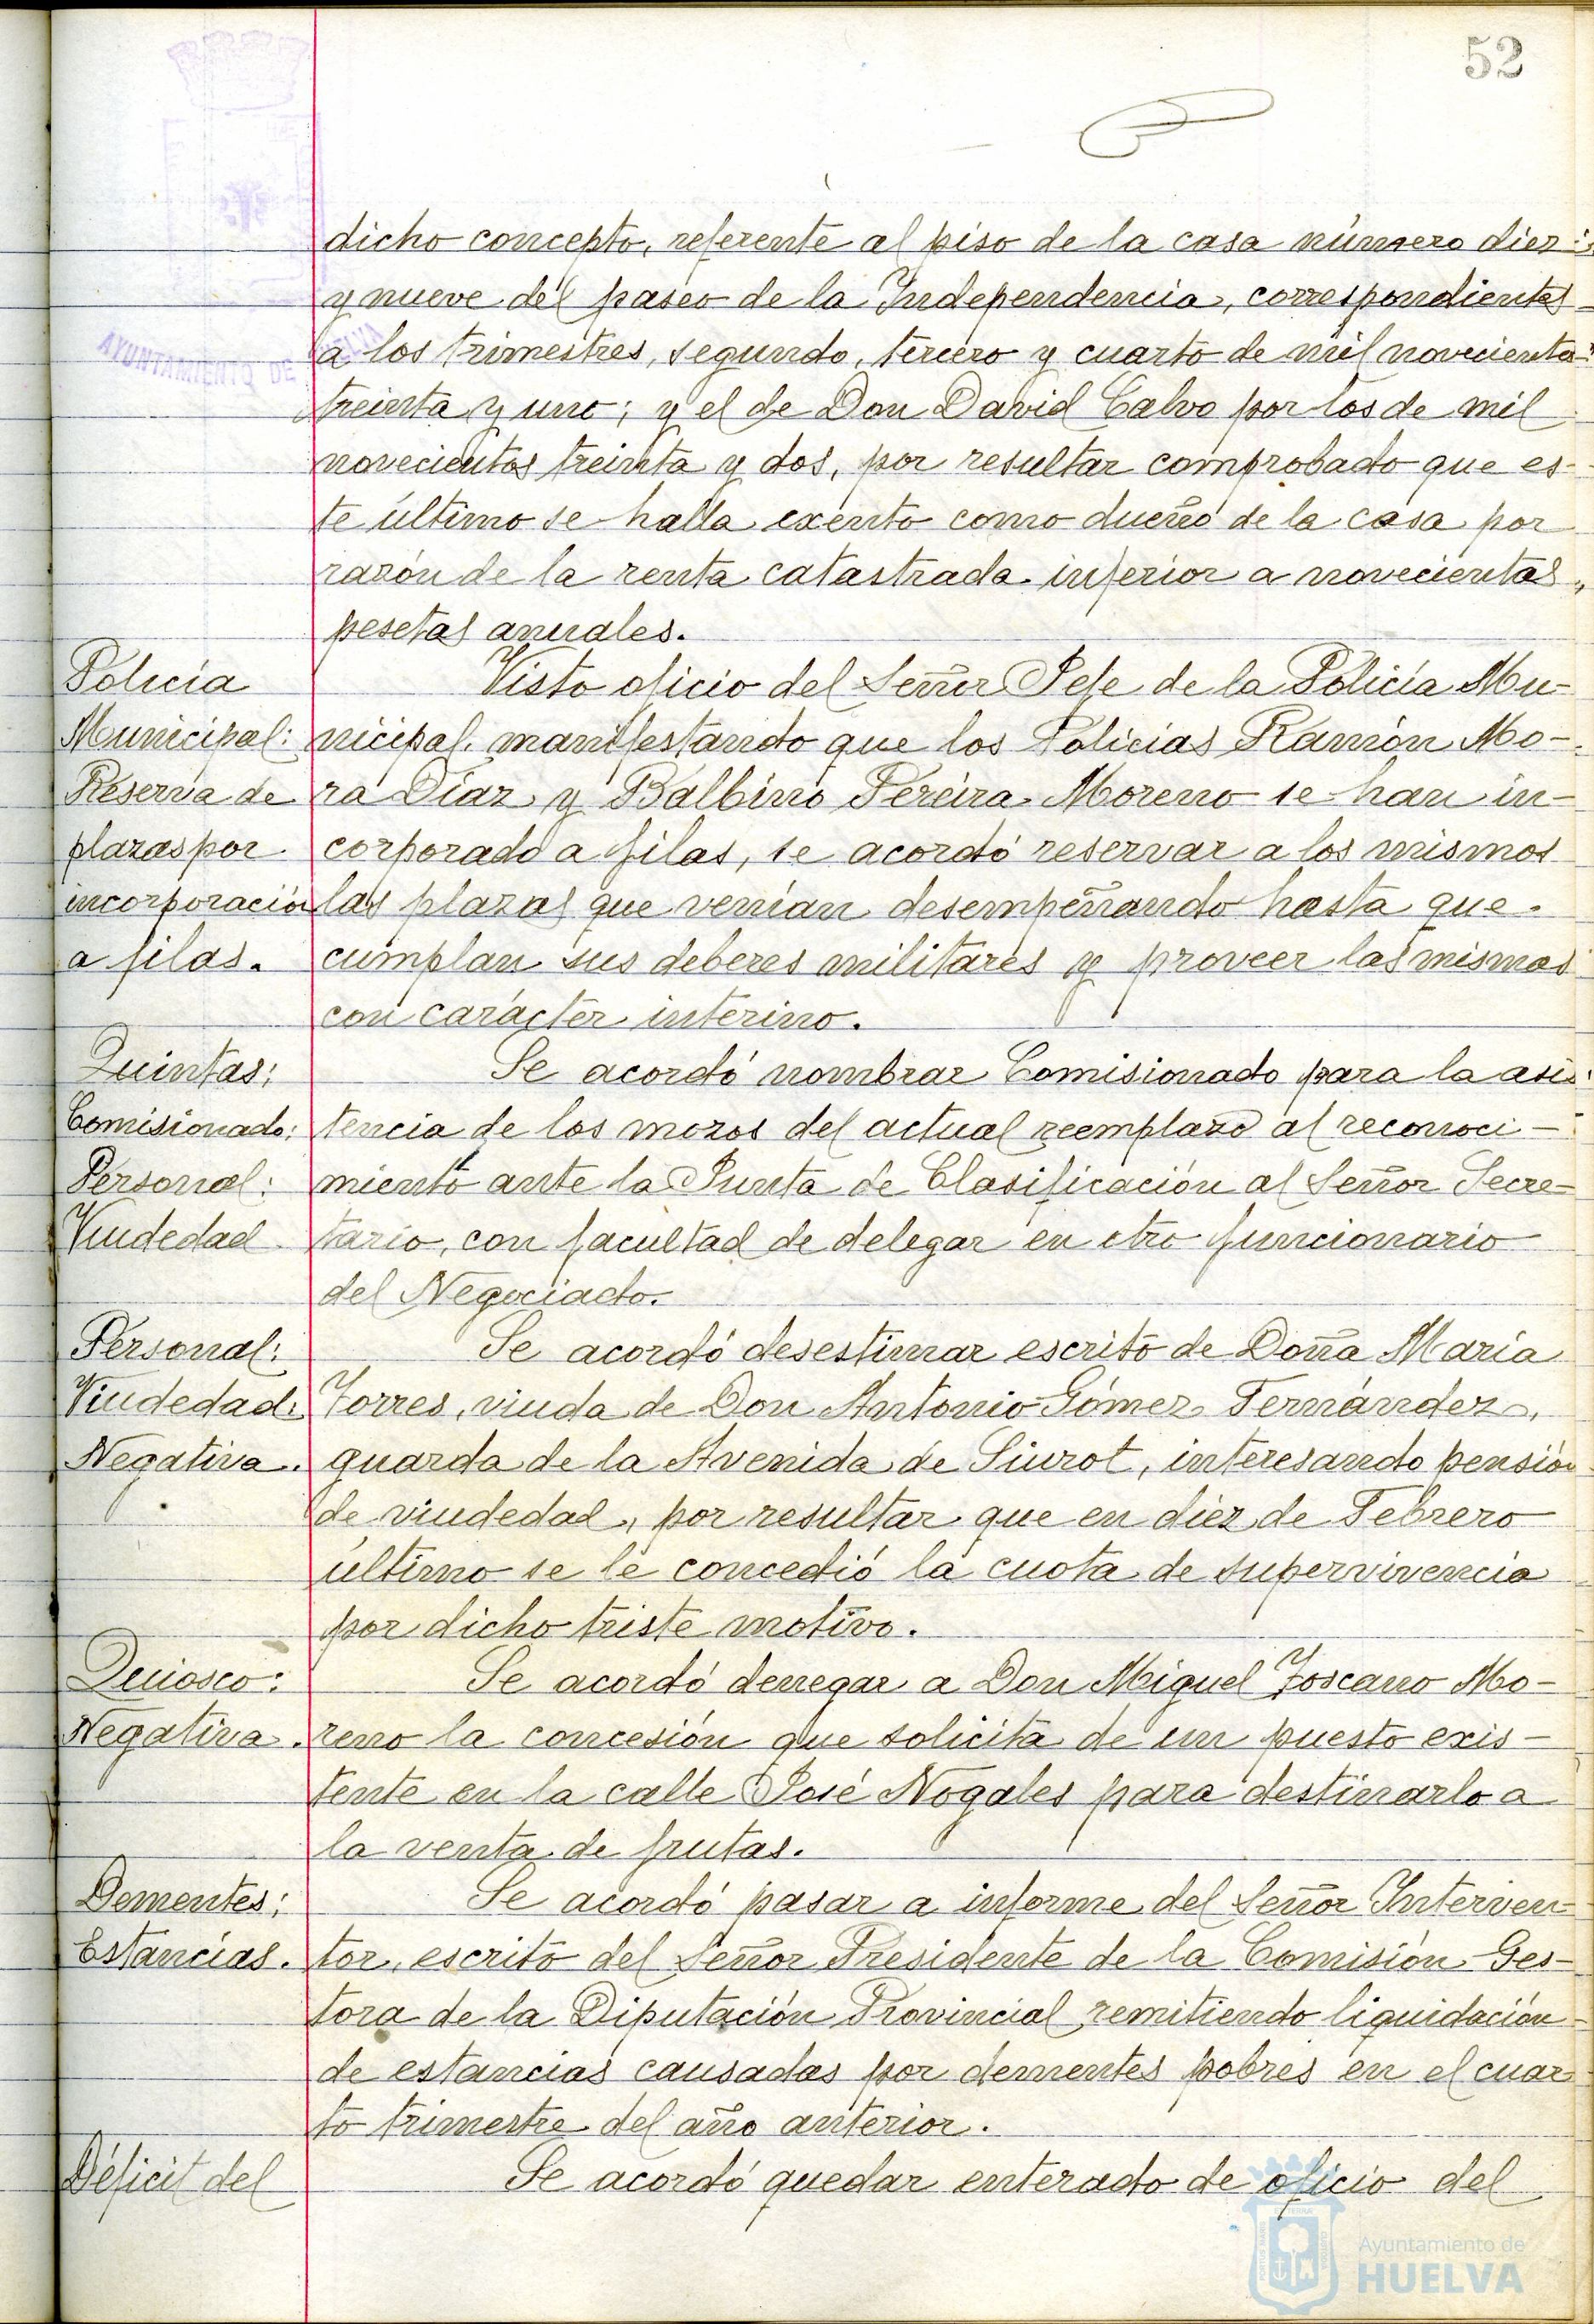 52
dicho concepto, referente al piso de la casa número diez
y nueve del paseo de la Independencia, correspondientes
a los trimestres, segundo, tercero y cuarto de mil novecientos
treinta y uno; y el de Don David Calvo por los de mil
novecientos treinta y dos, por resultar comprobado que es-
te último se halla exento como dueño de la casa por
razón de la renta catastrada inferior a novecientas
pesetas anuales.
Policía
Municipal:
Reserva de
plazas por
incorporación
a filas.
Visto oficio del Señor Jefe de la Policía Mu-
nicipal, manifestando que los Policías Ramón Mo-
ra Díaz y Balbino Pereira Moreno se han in-
corporado a filas, se acordó reservar a los mismos
las plazas que venían desempeñando hasta que
cumplan sus deberes militares y proveer las mismas
con carácter interino.
Quintas:
Comisionado:
Personal:
Viudedad
Se acordó nombrar Comisionado para la asis-
tencia de los mozos del actual reemplazo al reconoci-
miento ante la Junta de Clasificación al Señor Secre-
tario, con facultad de delegar en otro funcionario
del Negociado.
Personal:
Viudedad:
Negativa.
Se acordó desestimar escrito de Doña María
Torres, viuda de Don Antonio Gómez Fernández,
guarda de la Avenida de Siurot, interesando pensión
de viudedad, por resultar que en diez de Febrero
último se le concedió la cuota de supervivencia
por dicho triste motivo.
Quiosco:
Negativa.
Se acordó denegar a Don Miguel Toscano Mo-
reno la concesión que solicita de un puesto exis-
tente en la calle José Nogales para destinarlo a
la venta de frutas.
Dementes:
Estancias.
Se acordó pasar a informe del Señor Interven-
tor, escrito del Señor Presidente de la Comisión Ges-
tora de la Diputación Provincial remitiendo liquidación
de estancias causadas por dementes pobres en el cuar-
to trimestre del año anterior.
Déficit del
Se acordó quedar enterado de oficio del
AYUNTAMIENTO DE HUELVA
Ayuntamiento de
HUELVA